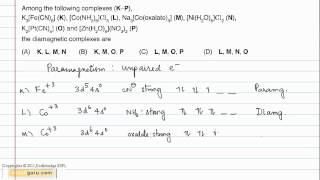 Among the following complexes (K–P),
K₃[Fe(CN)₆] (K), [Co(NH₃)₆]Cl₃ (L), Na₃[Co(oxalate)₃] (M), [Ni(H₂O)₆]Cl₂ (N),
K₂[Pt(CN)₄] (O) and [Zn(H₂O)₆](NO₃)₂ (P)
the diamagnetic complexes are
(A) K, L, M, N (B) K, M, O, P (C) L, M, O, P (D) L, M, N, O
Paramagnetism : unpaired e⁻
K) Fe⁺³ 3d⁵4s⁰ CN⊖ strong ↿⇂ ↿⇂ ↿ Paramag.
L) Co⁺³ 3d⁶4s⁰ NH₃ strong ↿⇂ ↿⇂ ↿⇂ Diamag.
M) Co⁺³ 3d⁶4s⁰ oxalate strong ↿⇂ ↿⇂ ↿